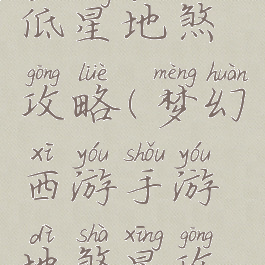 低星地煞
gōng lüè mèng huàn
攻略(梦幻
xī yóu shǒu yóu
西游手游
dì shà xīng gōng
地煞星攻